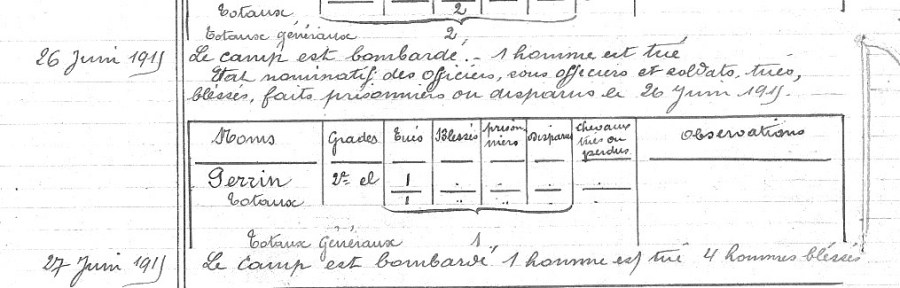 Totaux 2
Totaux généraux 2
26 Juin 1915 Le camp est bombardé. - 1 homme est tué
Etat nominatif des officiers, sous officiers et soldats, tués,
bléssés, faits prisonniers ou disparus le 26 Juin 1915.
Noms Grades Tués Blessés prison Disparus chevaux Observations
niers tués ou
perdus
Perrin 2e cl 1
Totaux 1
Totaux Généraux 1
27 Juin 1915 Le camp est bombardé 1 homme est tué 4 hommes bléssés